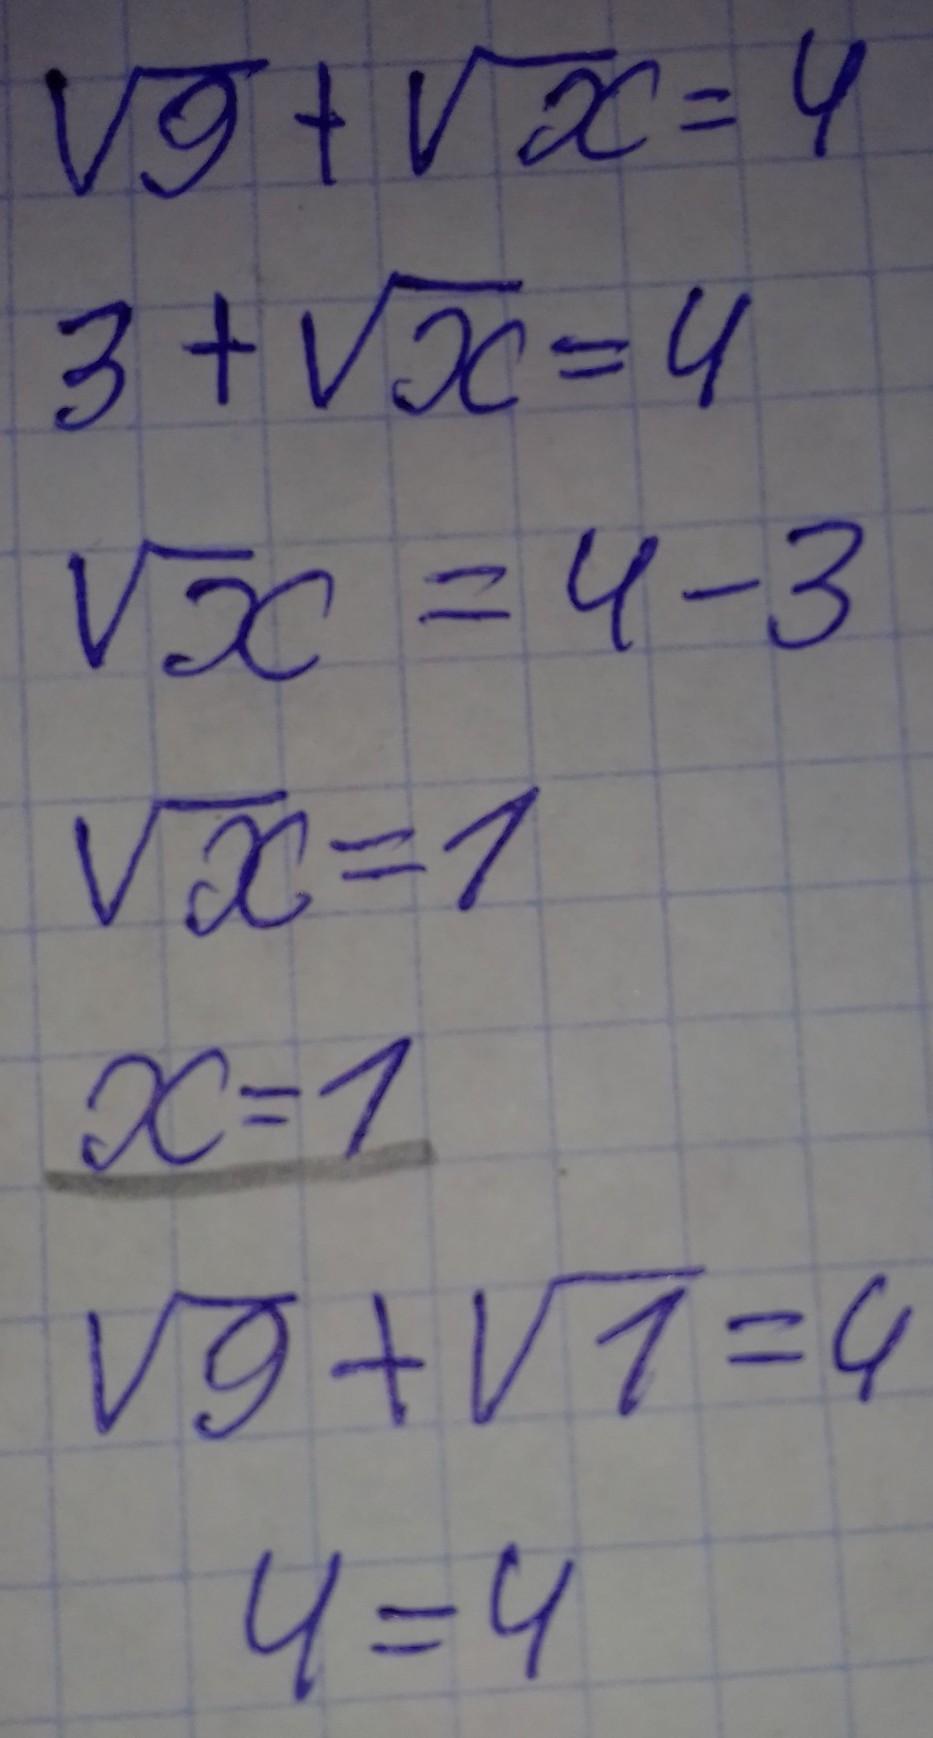 √9 + √x = 4
3 + √x = 4
√x = 4 - 3
√x = 1
x = 1
√9 + √1 = 4
4 = 4